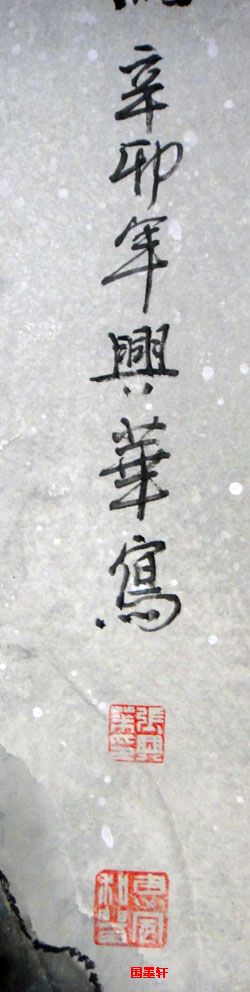 辛卯年興華寫
張興華印
国墨轩